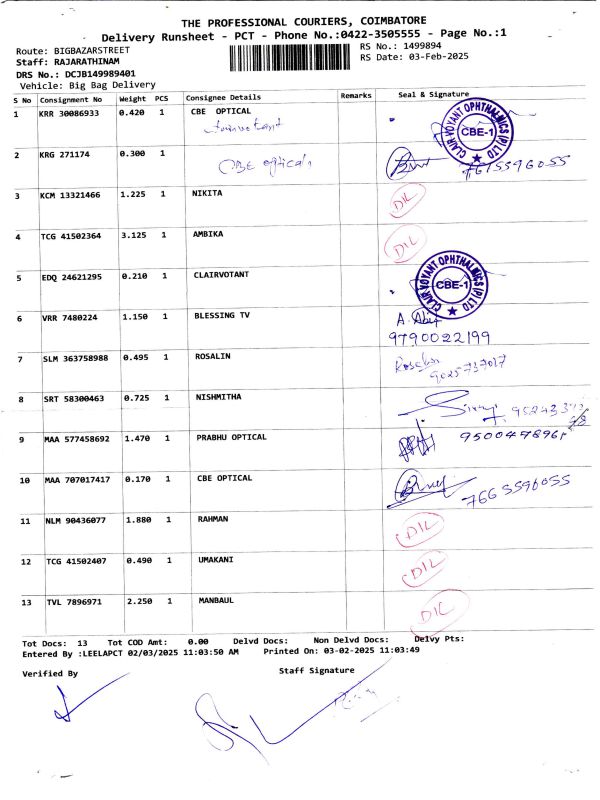 THE PROFESSIONAL COURIERS, COIMBATORE
Delivery Runsheet - PCT - Phone No.:0422-3505555 - Page No.:1
Route: BIGBAZARSTREET
RS No.: 1499894
Staff: RAJARATHINAM
RS Date: 03-Feb-2025
DRS No.: DCJB149989401
Vehicle: Big Bag Delivery
S No Consignment No Weight PCS Consignee Details Remarks Seal & Signature
1 KRR 30086933 0.420 1 CBE OPTICAL
CLAIR VOYANT OPHTHALMICS (P) LTD CBE-1
2 KRG 271174 0.300 1 CBE opticals
3 KCM 13321466 1.225 1 NIKITA DIL
4 TCG 41502364 3.125 1 AMBIKA DIL
5 EDQ 24621295 0.210 1 CLAIRVOTANT
CLAIR VOYANT OPHTHALMICS (P) LTD CBE-1
6 VRR 7480224 1.150 1 BLESSING TV
9790022199
7 SLM 363758988 0.495 1 ROSALIN Rosalin
9025737017
8 SRT 58300463 0.725 1 NISHMITHA
9 MAA 577458692 1.470 1 PRABHU OPTICAL
10 MAA 707017417 0.170 1 CBE OPTICAL
11 NLM 90436077 1.880 1 RAHMAN DIL
12 TCG 41502407 0.490 1 UMAKANI DIL
13 TVL 7896971 2.250 1 MANBAUL DIL
Tot Docs: 13 Tot COD Amt: 0.00 Delvd Docs: Non Delvd Docs: Delvy Pts:
Entered By :LEELAPCT 02/03/2025 11:03:50 AM Printed On: 03-02-2025 11:03:49
Verified By Staff Signature